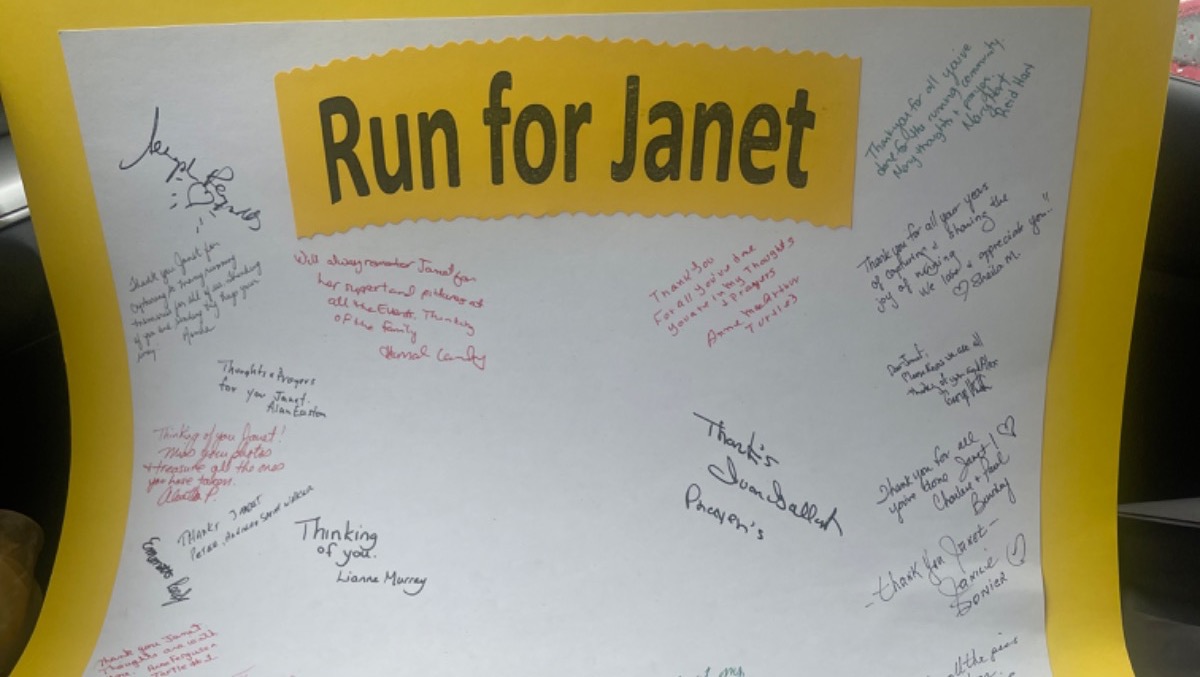 Run for Janet
Thank you for all you've
done for the running community.
Many thoughts & prayers
Mary Hart
Reid Hart
Joseph
Thank you Janet for
capturing so many running
for all of us. Thinking
of you and sending big hugs your
way
Will always remember Janet for
her support and pictures at
all the Events. Thinking
of the family
Thank you
For all you've done
You are in my thoughts
& Prayers
Anne MacArthur
Turtle3
Thank you for all your years
of capturing & sharing the
joy of running
We love & appreciate you!!
Sheila M.
Thoughts & Prayers
for you Janet.
Alan Easton
Dear Janet,
we are all
thinking of you and
Thinking of you Janet!
Miss your photos
& treasure all the ones
you have taken.
P.
Thanks
Ivan Gallant
Prayer's
Thank you for all
you've done Janet!
Charlene & Paul
Thanks Janet
Peter,
Thinking
of you.
Lianne Murray
- Thank You Janet -
Janice
Thank you Janet.
Thoughts are with
you. Ferguson
Turtle
all the pics
my